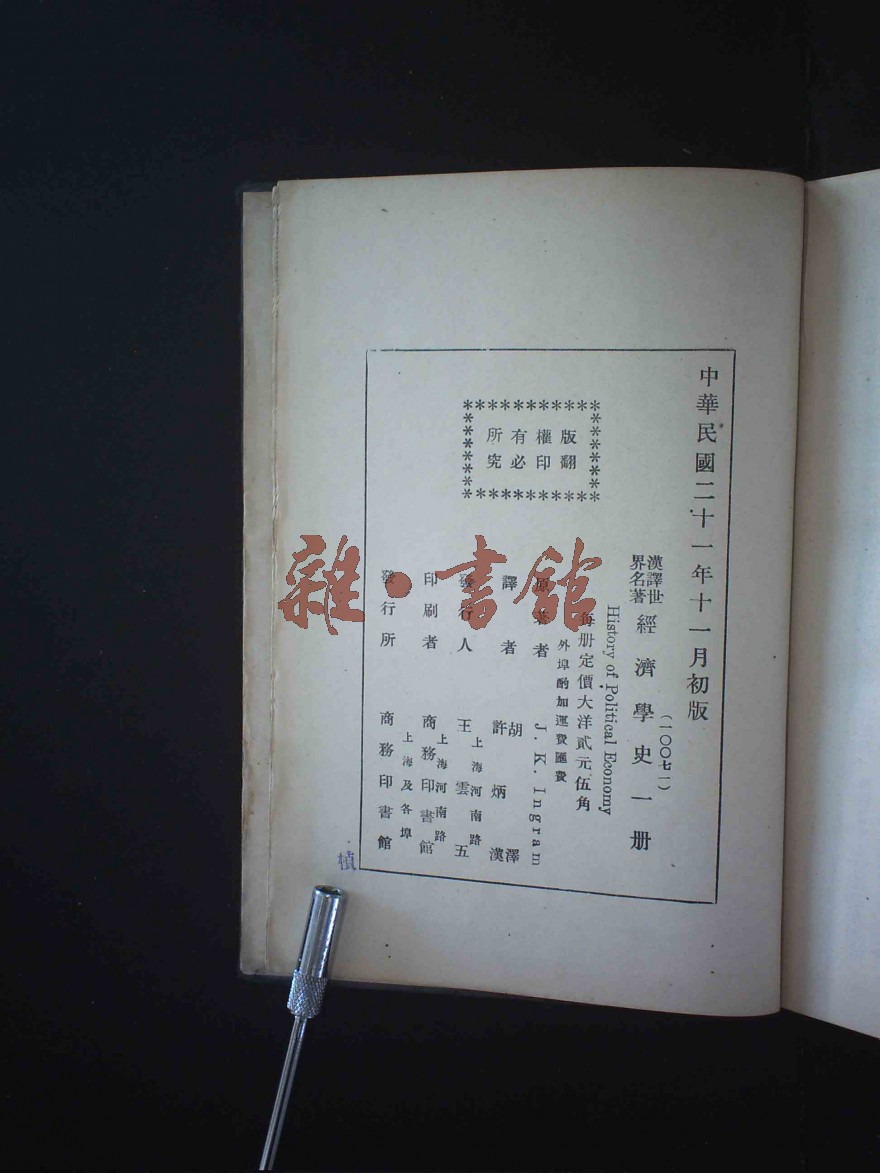 中華民國二十一年十一月初版
(一〇〇七一)
漢譯世界名著 經濟學史 一册
History of Political Economy
每册定價大洋貳元伍角
外埠酌加運費匯費
版權所有
翻印必究
原著者 J. K. Ingram
譯者 胡澤 許炳漢
發行人 王雲五 上海河南路
印刷者 商務印書館 上海河南路
發行所 商務印書館 上海及各埠
楨
雜·書館